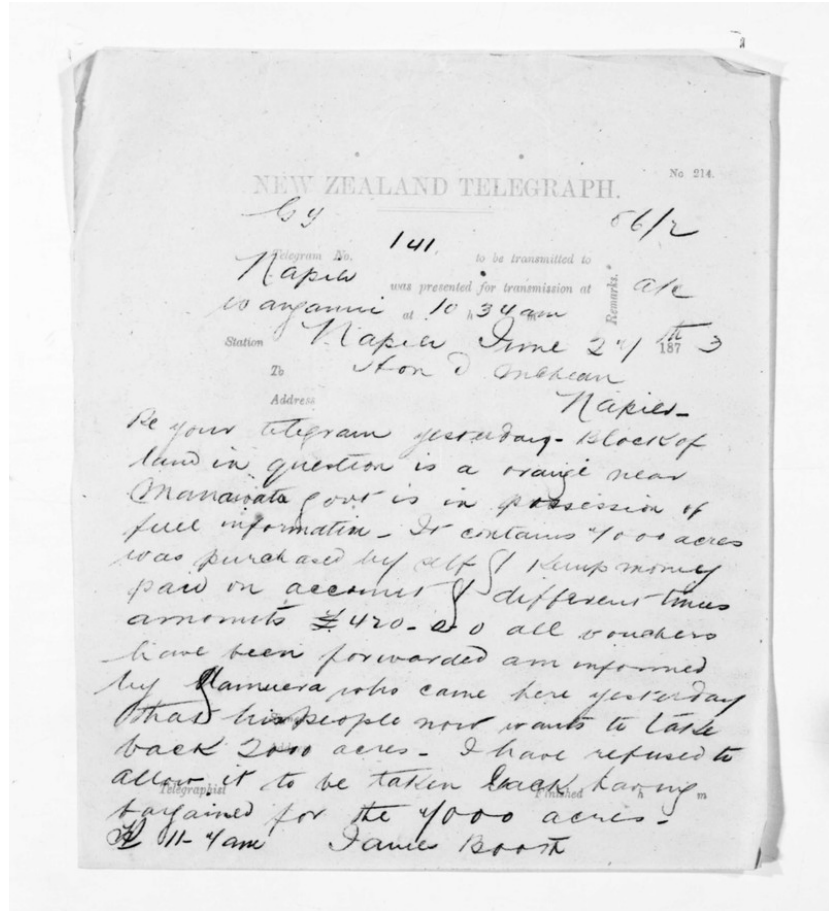 No 214.
NEW ZEALAND TELEGRAPH.
66/2
Telegram No. 141. to be transmitted to
Napier was presented for transmission at Remarks.
Wanganui at 10 h 34 am
Station Napier June 27th 1873
To Hon D McLean
Address Napier-
Re your telegram yesterday- Block of
land in question is a near
Manawatu Govt is in possession of
full information- It contains 7000 acres
was purchased by self & Kemp money
paid on account & different times
amounts £420-0-0 all vouchers
have been forwarded am informed
by Hamuera who came here yesterday
that his people now wants to take
back 2000 acres- I have refused to
allow it to be taken back having
Telegraphist Finished h m
bargained for the 7000 acres-
11-7am James Booth